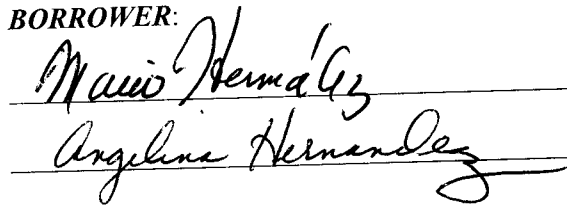 BORROWER:
Mario Hernández
Angelina Hernandez